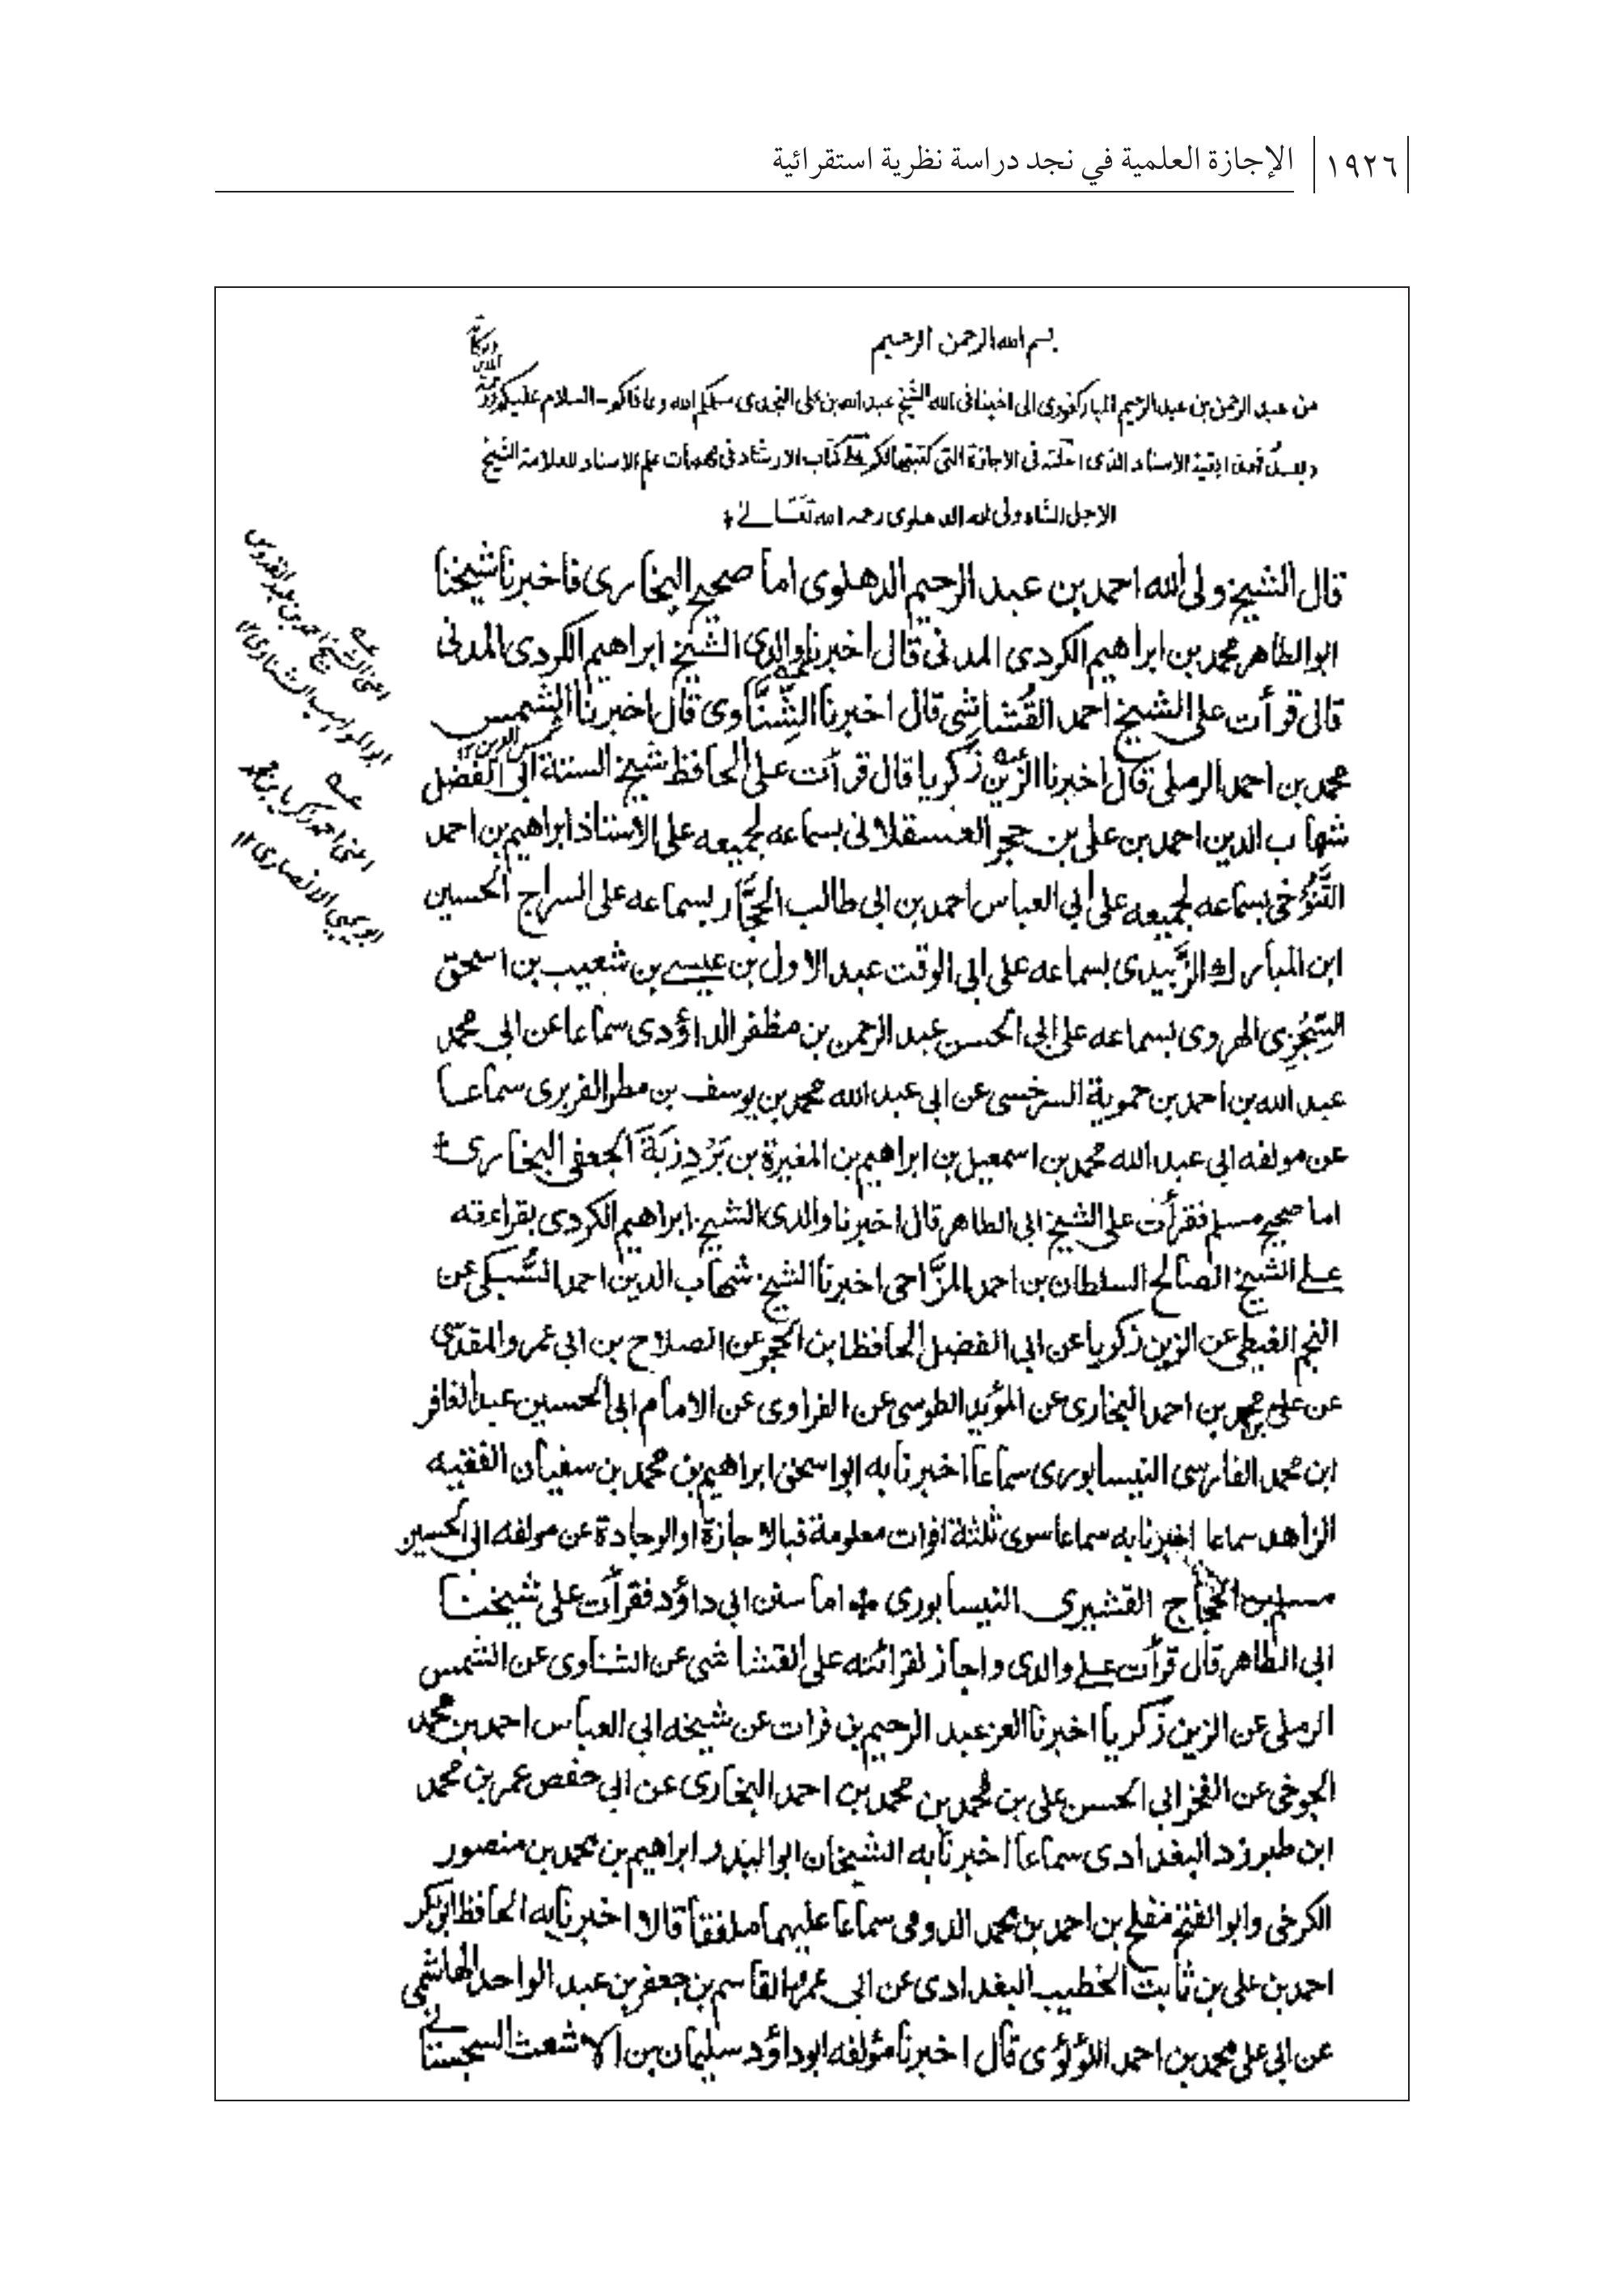 ١٩٢٦
الإجازة العلمية في نجد دراسة نظرية استقرائية
بسم الله الرحمن الرحيم
من عبد الرحمن بن عبد الرحيم المباركفوري الى اخينا فى الله الشيخ عبد الله بن على النجدى سلمكم الله وعافاكم - السلام عليكم ورحمة
وبعد فهذا بقية الاسناد الذى احلته فى الاجازة التى كتبتها لكم كتاب الارشاد فى مهمات علم الاسناد للعلامة الشيخ
الاجل الشاه ولى الله الدهلوى رحمه الله تعالى
قال الشيخ ولى الله احمد بن عبد الرحيم الدهلوى اما صحيح البخارى فاخبرنا شيخنا
ابو الطاهر محمد بن ابراهيم الكردى المدنى قال اخبرنا والدى الشيخ ابراهيم الكردى المدنى
قال قرأت على الشيخ احمد القُشاشى قال اخبرنا الشِّنَّاوى قال اخبرنا الشمس
محمد بن احمد الرملى قال اخبرنا الزين زكريا قال قرأت على الحافظ شيخ السنة ابى الفضل
شهاب الدين احمد بن على بن حجر العسقلانى بسماعه لجميعه على الاستاذ ابراهيم بن احمد
التَّنُوخى بسماعه لجميعه على أبي العباس احمد بن ابى طالب الحجَّار بسماعه على السراج الحسين
ابن المبارك الزَّبيدى بسماعه على ابى الوقت عبد الاول بن عيسى بن شعيب بن اسحق
السِّجْزِى الهروى بسماعه على ابى الحسن عبد الرحمن بن مظفر الداؤدى سماعا عن ابى محمد
عبد الله بن احمد بن حموية السرخسى عن ابى عبد الله محمد بن يوسف بن مطر الفربرى سماعا
عن مولفه ابى عبد الله محمد بن اسمعيل بن ابراهيم بن المغيرة بن بَرْدِزبَة الجعفى البخارى
اما صحيح مسلم فقرأت على الشيخ ابى الطاهر قال اخبرنا والدى الشيخ ابراهيم الكردى بقراءته
على الشيخ الصالح السلطان بن احمد المزَّاحى اخبرنا الشيخ شهاب الدين احمد السُّبكى عن
النجم الغيطى عن الزين زكريا عن ابى الفضل الحافظ ابن الحجر عن الصلاح بن ابى عمرو المقدسى
عن على بن احمد البخارى عن المؤيد الطوسى عن الفراوى عن الامام ابى الحسين عبد الغافر
ابن محمد الفارسى النيسابورى سماعا اخبرنا به ابو اسحق ابراهيم بن محمد بن سفيان الفقيه
الزاهد سماعا اخبرنا به سماعا سوى ثلثة افوات معلومة فبالاجازة او الوجادة عن مولفه ابى الحسين
مسلم بن الحجاج القشيرى النيسابورى اما سنن ابى داؤد فقرأت على شيخنا
ابى الطاهر قال قرأت على والدى واجاز لقرائته على القشاشى عن الشناوى عن الشمس
الرملى عن الزين زكريا اخبرنا العز عبد الرحيم بن فرات عن شيخه ابى العباس احمد بن محمد
الجوخى عن الفخر ابى الحسن على بن محمد بن محمد بن احمد البخارى عن ابى حفص عمر بن محمد
ابن طبرزد البغدادى سماعا اخبرنا به الشيخان ابو البدر ابراهيم بن محمد بن منصور
الكرخى وابو الفتح مفلح بن احمد بن محمد الدومى سماعا عليهما ملفقا قالا اخبرنا به الحافظ ابو بكر
احمد بن على بن ثابت الخطيب البغدادى عن ابى عمر القاسم بن جعفر بن عبد الواحد الهاشمى
عن ابى على محمد بن احمد اللؤلؤى قال اخبرنا مؤلفه ابو داؤد سليمان بن الاشعث السجستانى
اعنى الشيخ احمد بن عبد القدوس
ابو المواهب الشناوى ١٢
اعنى احمد زكريا بن محمد
ابو يحيى الانصارى ١٢